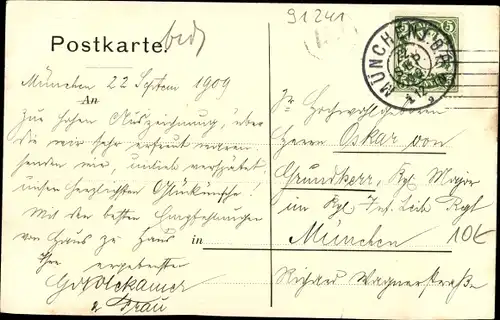 91241
Postkarte.
München 22 Septem 1909
An
Zur hohen Auszeichnung, über
die wir sehr erfreut waren
senden wir, verspätet,
unsere herzlichsten Glückwünsche!
Mit den besten Empfehlungen
von Haus zu Haus
Ihr ergebenster
Frau
MÜNCHEN
5
Sr. Hochwohlgeboren
Herrn Oskar von
Grundherr, Kgl. Major
im Kgl. Inf. Leib Rgt
in München
10€
Richard Wagnerstraße